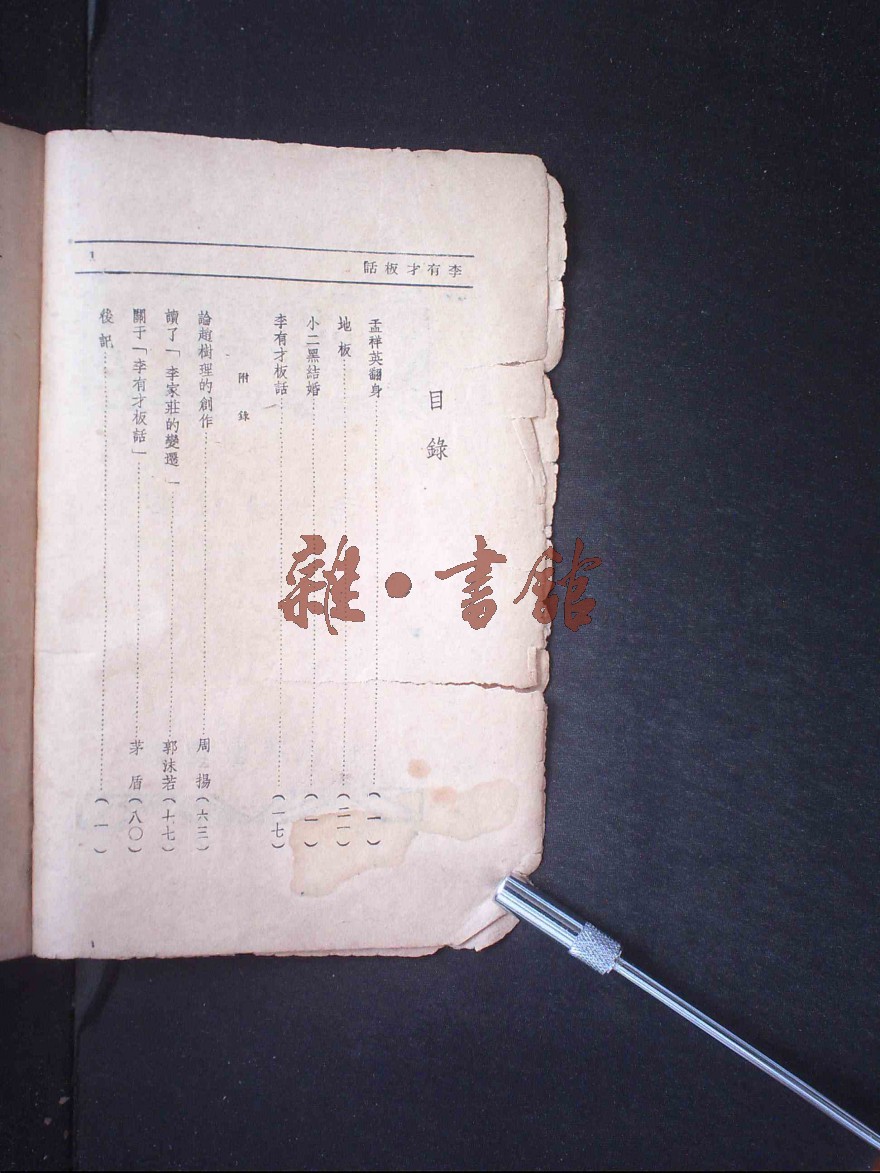 李有才板話
1
目錄
孟祥英翻身………(一)
地板………(二一)
小二黑結婚………(一)
李有才板話………(一七)
附錄
論趙樹理的創作………周揚(六三)
讀了「李家莊的變遷」………郭沫若(十七)
關于「李有才板話」………茅盾(八〇)
後記………(一)
雜·書館